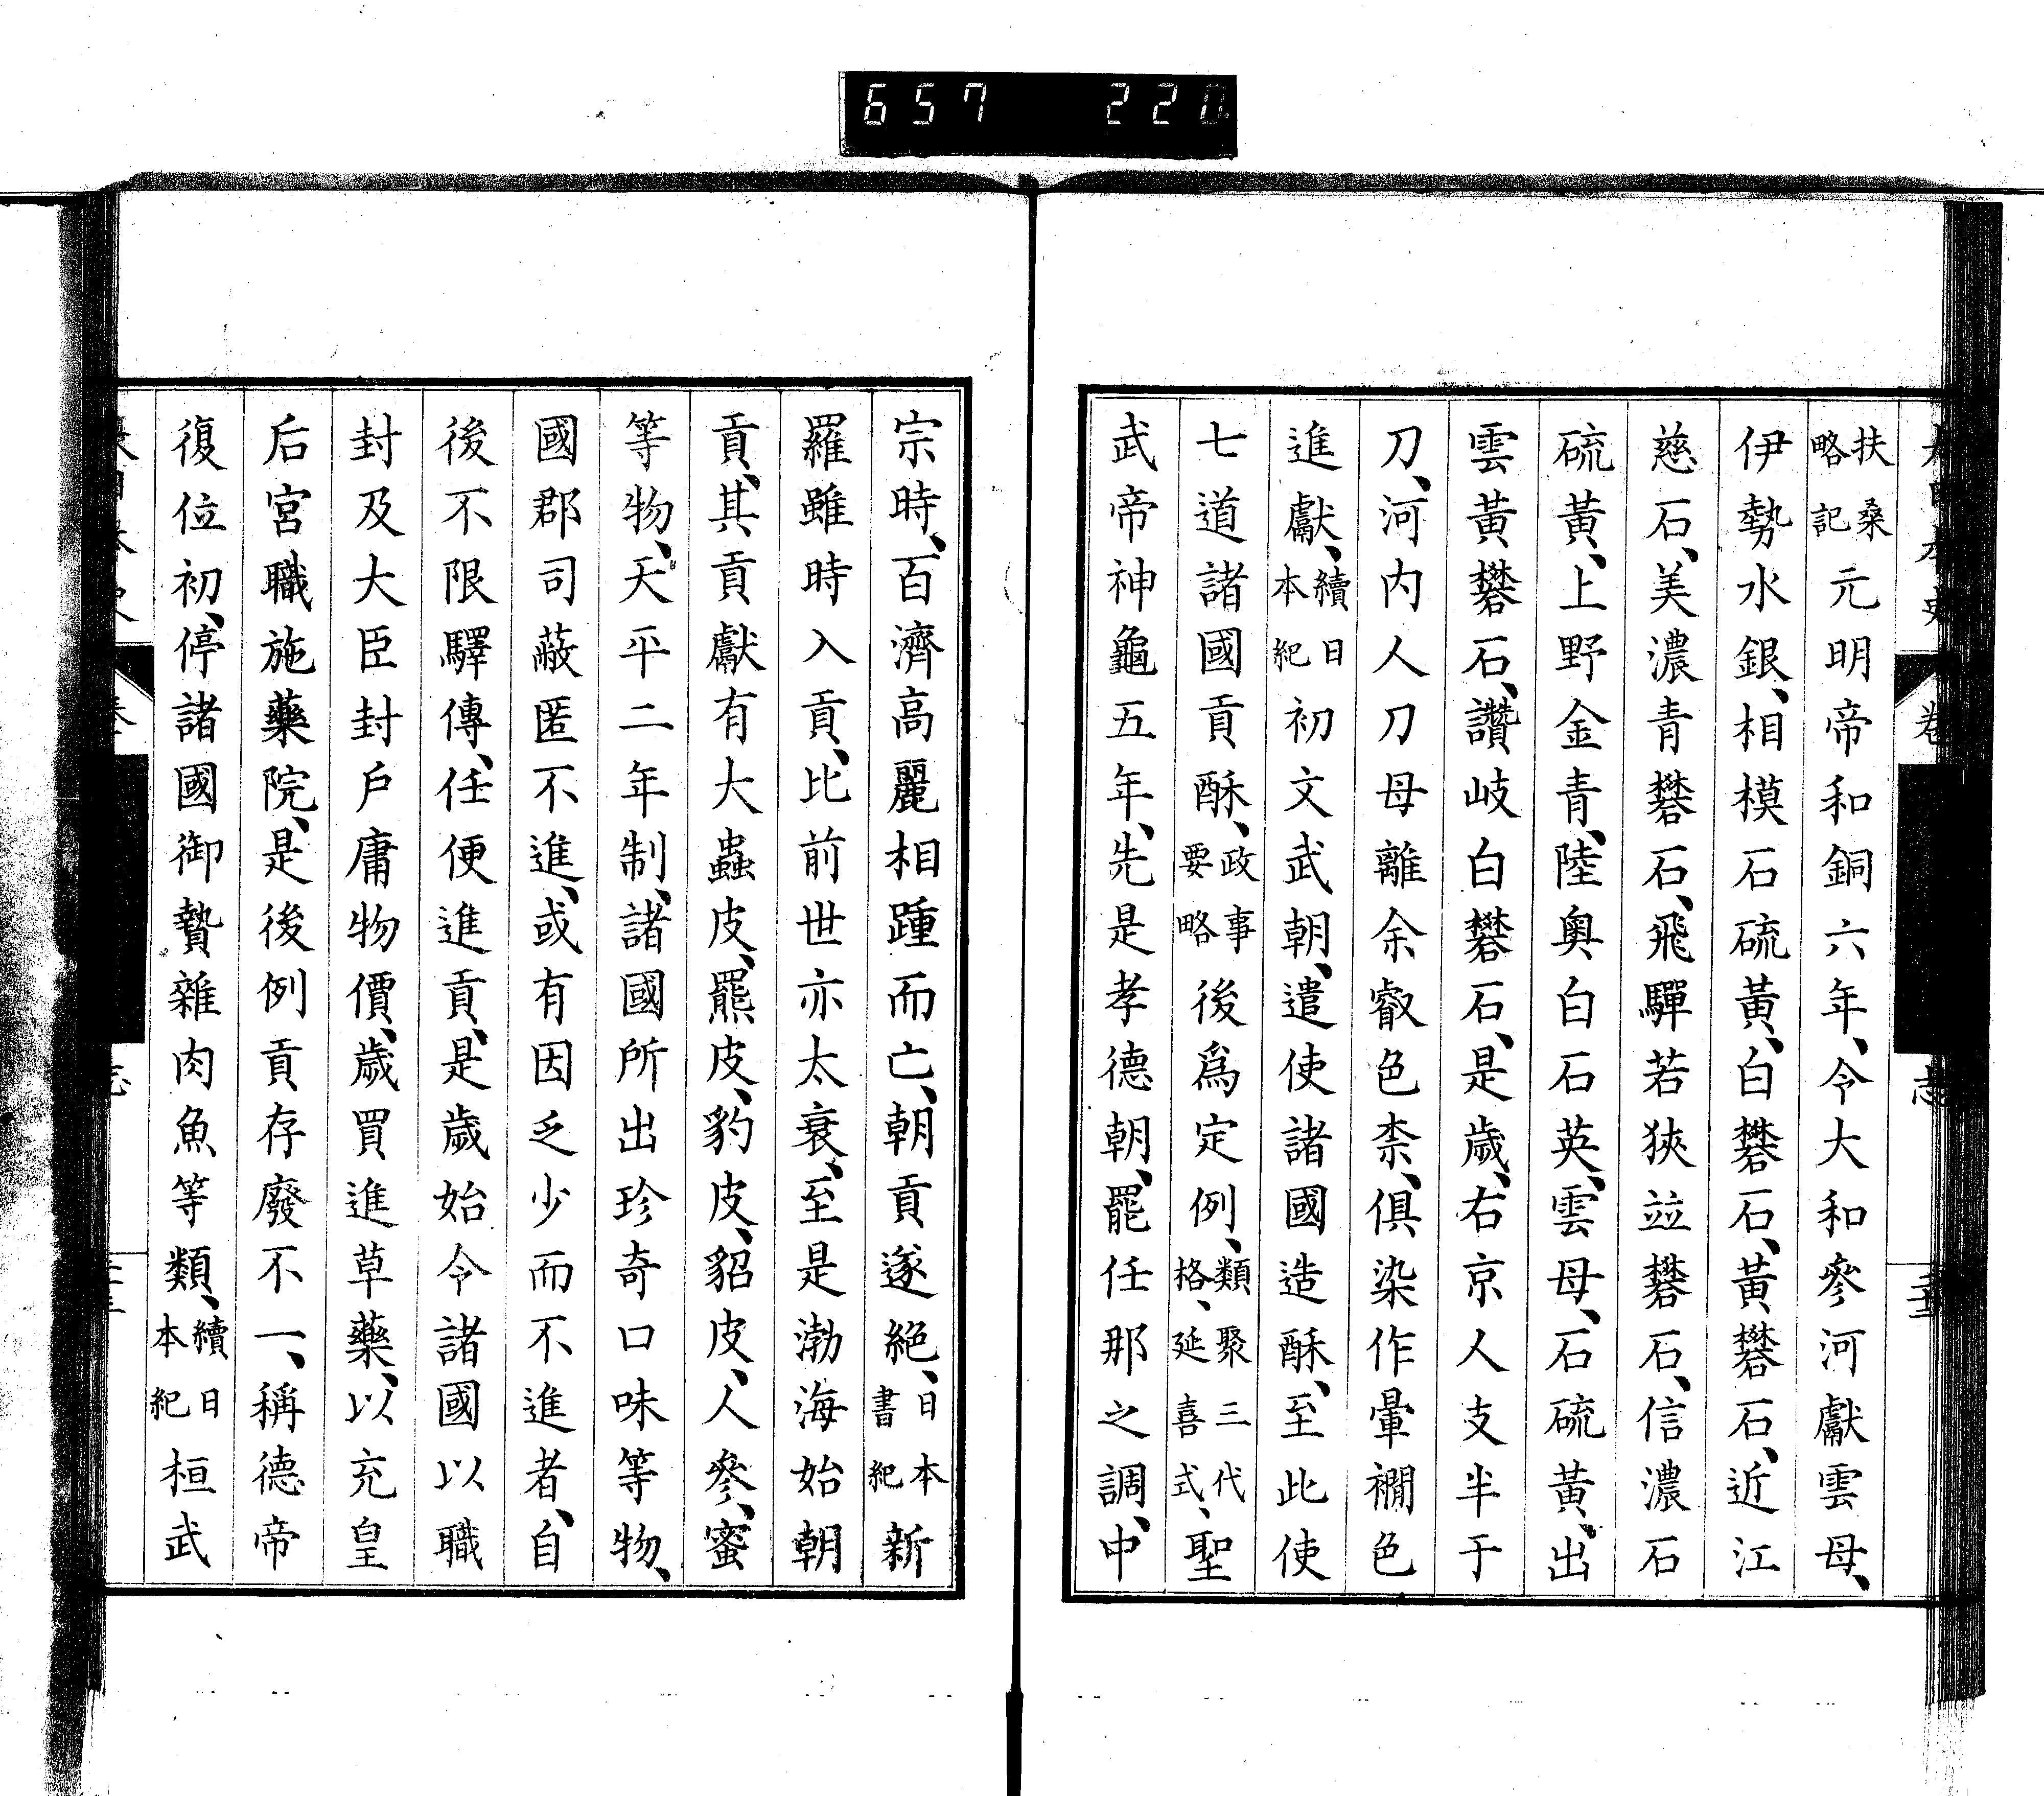 657 220
扶桑略記元明帝和銅六年、令大和參河獻雲母、
伊勢水銀、相模石硫黃、白礬石、黃礬石、近江
慈石、美濃青礬石、飛驒若狹並礬石、信濃石
硫黃、上野金青、陸奧白石英、雲母、石硫黃、出
雲黃礬石、讚岐白礬石、是歲、右京人支半于
刀、河內人刀母離余叡色柰、俱染作暈襉色
進獻、續日本紀初文武朝、遣使諸國造酥、至此使
七道諸國貢酥、政事要略後爲定例、類聚三代格、延喜式、聖
武帝神龜五年、先是孝德朝、罷任那之調、中
宗時、百濟高麗相踵而亡、朝貢遂絕、日本書紀新
羅雖時入貢、比前世亦太衰、至是渤海始朝
貢、其貢獻有大蟲皮、羆皮、豹皮、貂皮、人參、蜜
等物、天平二年制、諸國所出珍奇口味等物、
國郡司蔽匿不進、或有因乏少而不進者、自
後不限驛傳、任便進貢、是歲始令諸國以職
封及大臣封戶庸物價、歲買進草藥、以充皇
后宮職施藥院、是後例貢存廢不一、稱德帝
復位初、停諸國御贄雜肉魚等類、續日本紀桓武